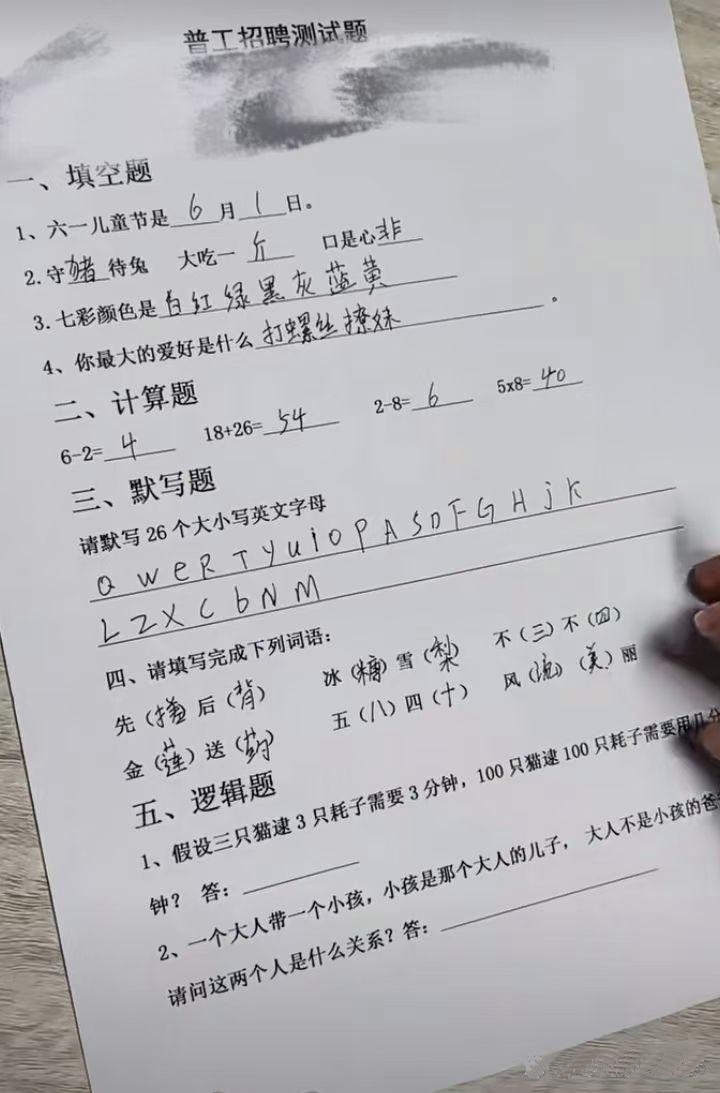 普工招聘测试题
一、填空题
1、六一儿童节是 6 月 1 日。
2.守猪待兔 大吃一 斤 口是心非
3.七彩颜色是白红绿黑灰蓝黄
4、你最大的爱好是什么打螺丝撩妹。
二、计算题
6-2= 4 18+26= 54 2-8= 6 5x8= 40
三、默写题
请默写 26 个大小写英文字母
Q W e R T Y u i O P A S D F G H j k
L Z X C b N M
四、请填写完成下列词语:
先(搓)后(背) 冰(糖)雪(梨) 不(三)不(四)
金(莲)送(药) 五(八)四(十) 风(流)(美)丽
五、逻辑题
1、假设三只猫逮 3 只耗子需要 3 分钟,100 只猫逮 100 只耗子需要用几分
钟? 答:
2、一个大人带一个小孩,小孩是那个大人的儿子, 大人不是小孩的爸
请问这两个人是什么关系?答: